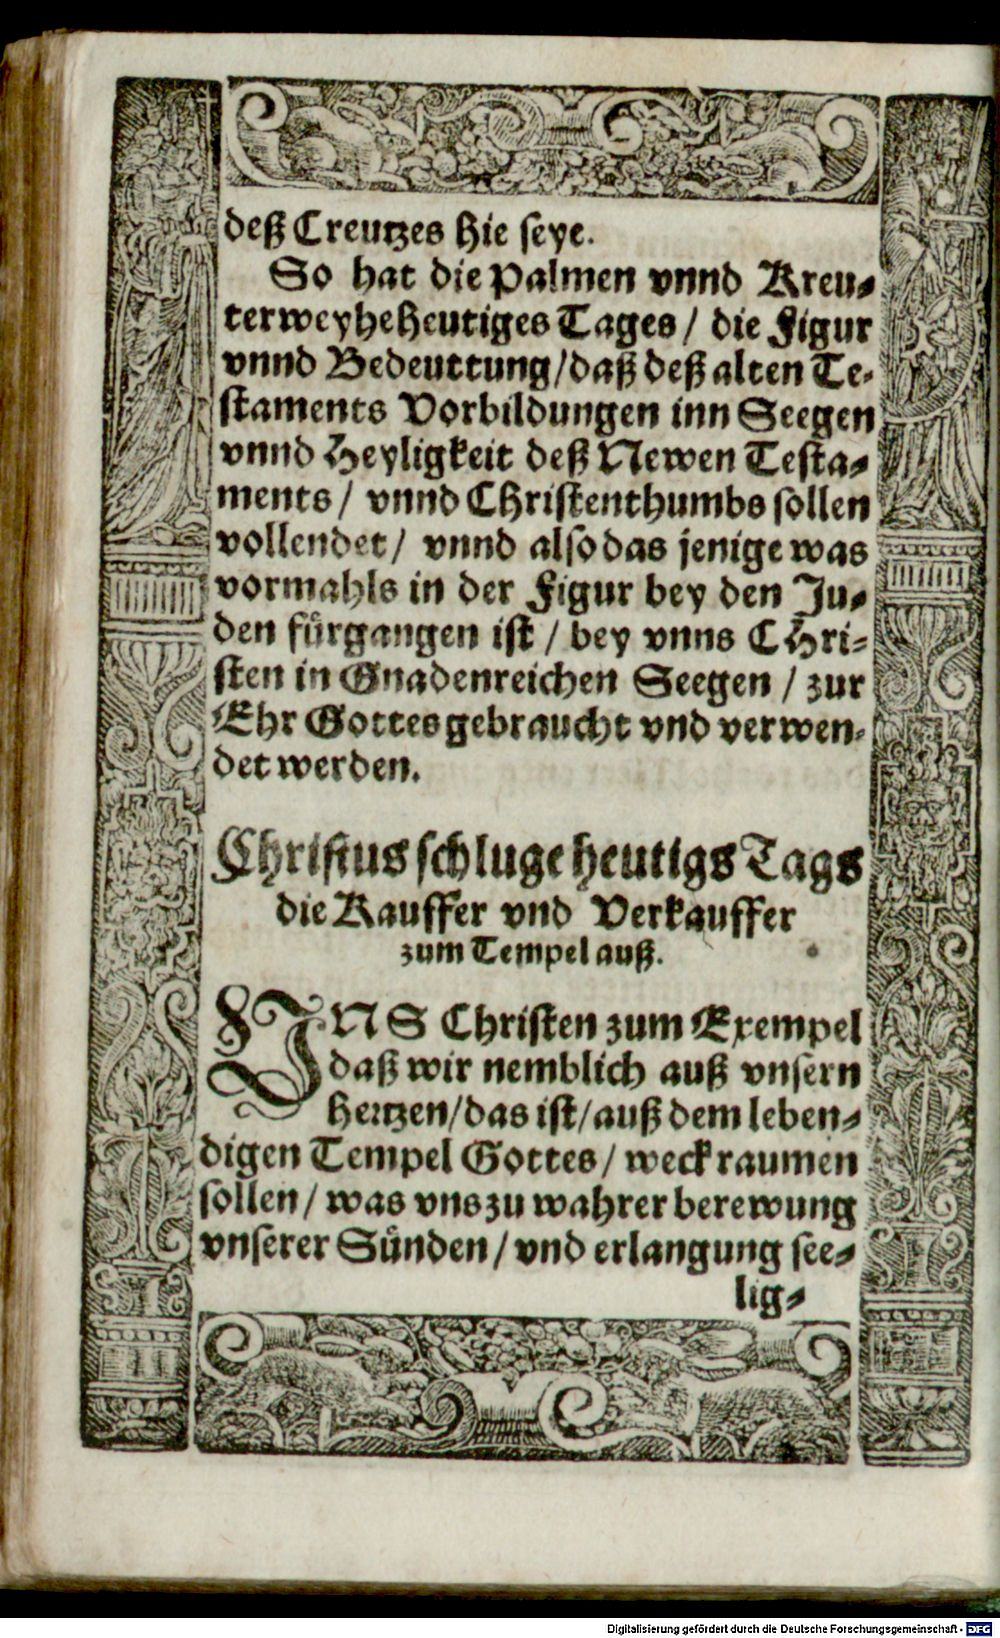 deß Creutzes hie seye.
So hat die Palmen vnnd Kreu-
terweyhe heutiges Tages / die Figur
vnnd Bedeuttung / daß deß alten Te-
staments Vorbildungen inn Seegen
vnnd Heyligkeit deß Newen Testa-
ments / vnnd Christenthumbs sollen
vollendet / vnnd also das jenige was
vormahls in der Figur bey den Ju-
den fürgangen ist / bey vnns CHri-
sten in Gnadenreichen Seegen / zur
Ehr Gottes gebraucht vnd verwen-
det werden.
Christus schluge heutigs Tags
die Kauffer vnd Verkauffer
zum Tempel auß.
INS Christen zum Exempel
daß wir nemblich auß vnsern
hertzen / das ist / auß dem leben-
digen Tempel Gottes / weck raumen
sollen / was vns zu wahrer berewung
vnserer Sünden / vnd erlangung see-
lig-
Digitalisierung gefördert durch die Deutsche Forschungsgemeinschaft - DFG